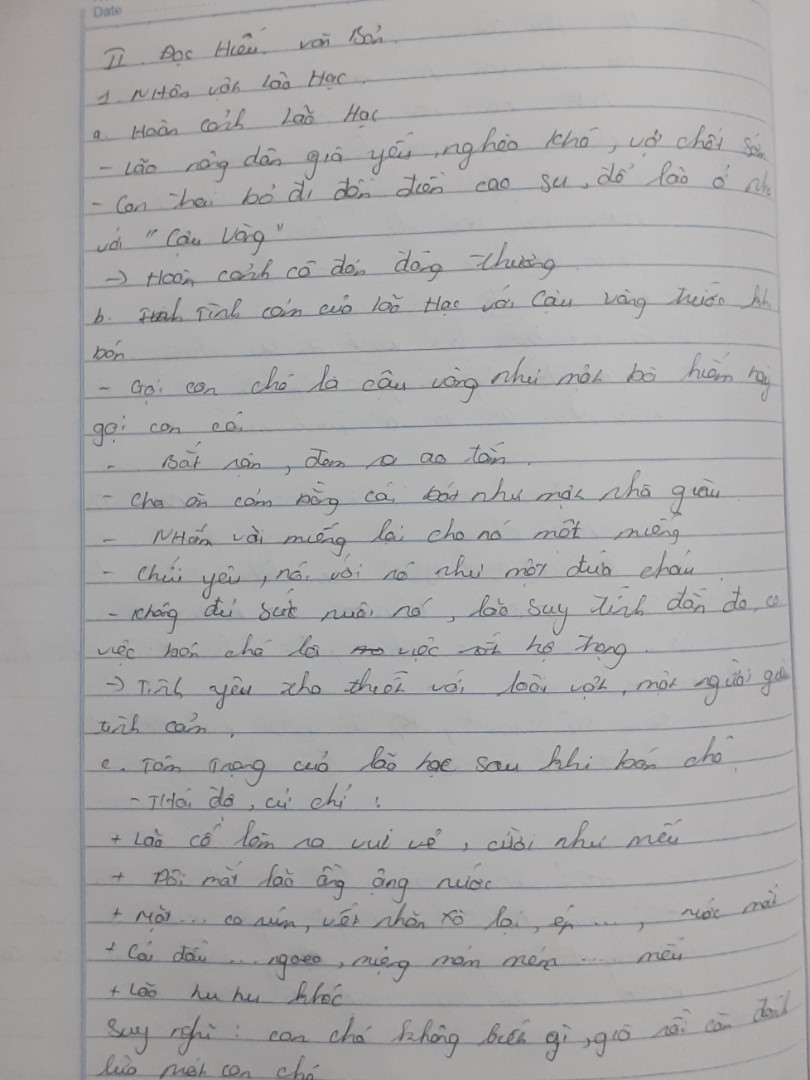 Date
II. Đọc Hiểu văn Bản
1. Nhân vật Lão Hạc.
a. Hoàn cảnh Lão Hạc
- Lão nông dân già yếu, nghèo khổ, vợ chết sớm
- Con trai bỏ đi đồn điền cao su, để lão ở nhà
với "Cậu Vàng"
-> Hoàn cảnh cô đơn đáng thương
b. Tình cảm của lão Hạc với Cậu vàng trước kh
bán
- Gọi con chó là cậu vàng như một bà hiếm hoi
gọi con cái
- Bắt rận, đem ra ao tắm.
- Cho ăn cơm bằng cái bát như một nhà giàu
- Nhắm vài miếng lại cho nó một miếng
- Chửi yêu, nói với nó như một đứa cháu
- Không đủ sức nuôi nó, lão suy tính đắn đo, co
việc bán chó là việc rất hệ trọng.
-> Tình yêu tha thiết với loài vật, một người già
tình cảm.
c. Tâm Trạng của lão hạc sau khi bán chó
- Thái độ, cử chỉ :
+ Lão cố làm ra vui vẻ, cười như mếu
+ Đôi mắt lão ầng ậng nước
+ Mặt... co rúm, vết nhăn xô lại, ép ..., nước mắt
+ Cái đầu ... ngoẹo, miệng móm mém .... mếu
+ Lão hu hu khóc
Suy nghĩ : con chó không biết gì, già rồi còn đánh
lừa một con chó